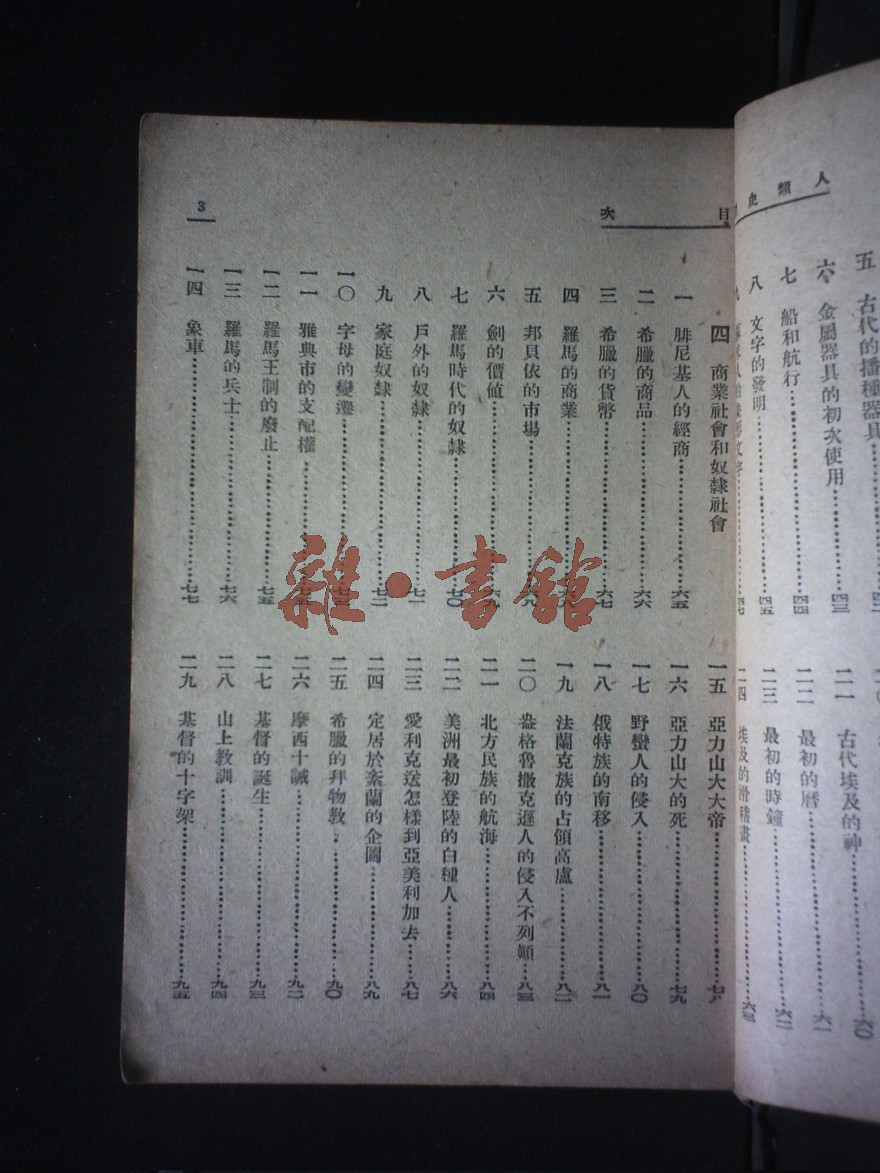 人類史
五 古代的播種器具
六 金屬器具的初次使用……四三
七 船和航行……四四
八 文字的發明……四五
二一 古代埃及的神……六〇
二二 最初的曆……六一
二三 最初的時鐘……六二
二四 埃及的滑稽畫……六三
目次
3
四 商業社會和奴隸社會
一 腓尼基人的經商……六五
二 希臘的商品……六六
三 希臘的貨幣……六七
四 羅馬的商業
五 邦貝依的市場……六八
六 劍的價值
七 羅馬時代的奴隸……七〇
八 戶外的奴隸……七一
九 家庭奴隸……七二
一〇 字母的變遷
一一 雅典市的支配權
一二 羅馬王制的廢止……七五
一三 羅馬的兵士……七六
一四 象車……七七
一五 亞力山大大帝……七八
一六 亞力山大的死……七九
一七 野蠻人的侵入……八〇
一八 俄特族的南移……八一
一九 法蘭克族的占領高盧……八二
二〇 盎格魯撒克遜人的侵入不列顛……八三
二一 北方民族的航海……八四
二二 美洲最初登陸的白種人……八六
二三 愛利克送怎樣到亞美利加去……八七
二四 定居於紊蘭的企圖……八九
二五 希臘的拜物教……九〇
二六 摩西十誡……九二
二七 基督的誕生……九三
二八 山上教訓……九四
二九 基督的十字架……九五
雜·書館